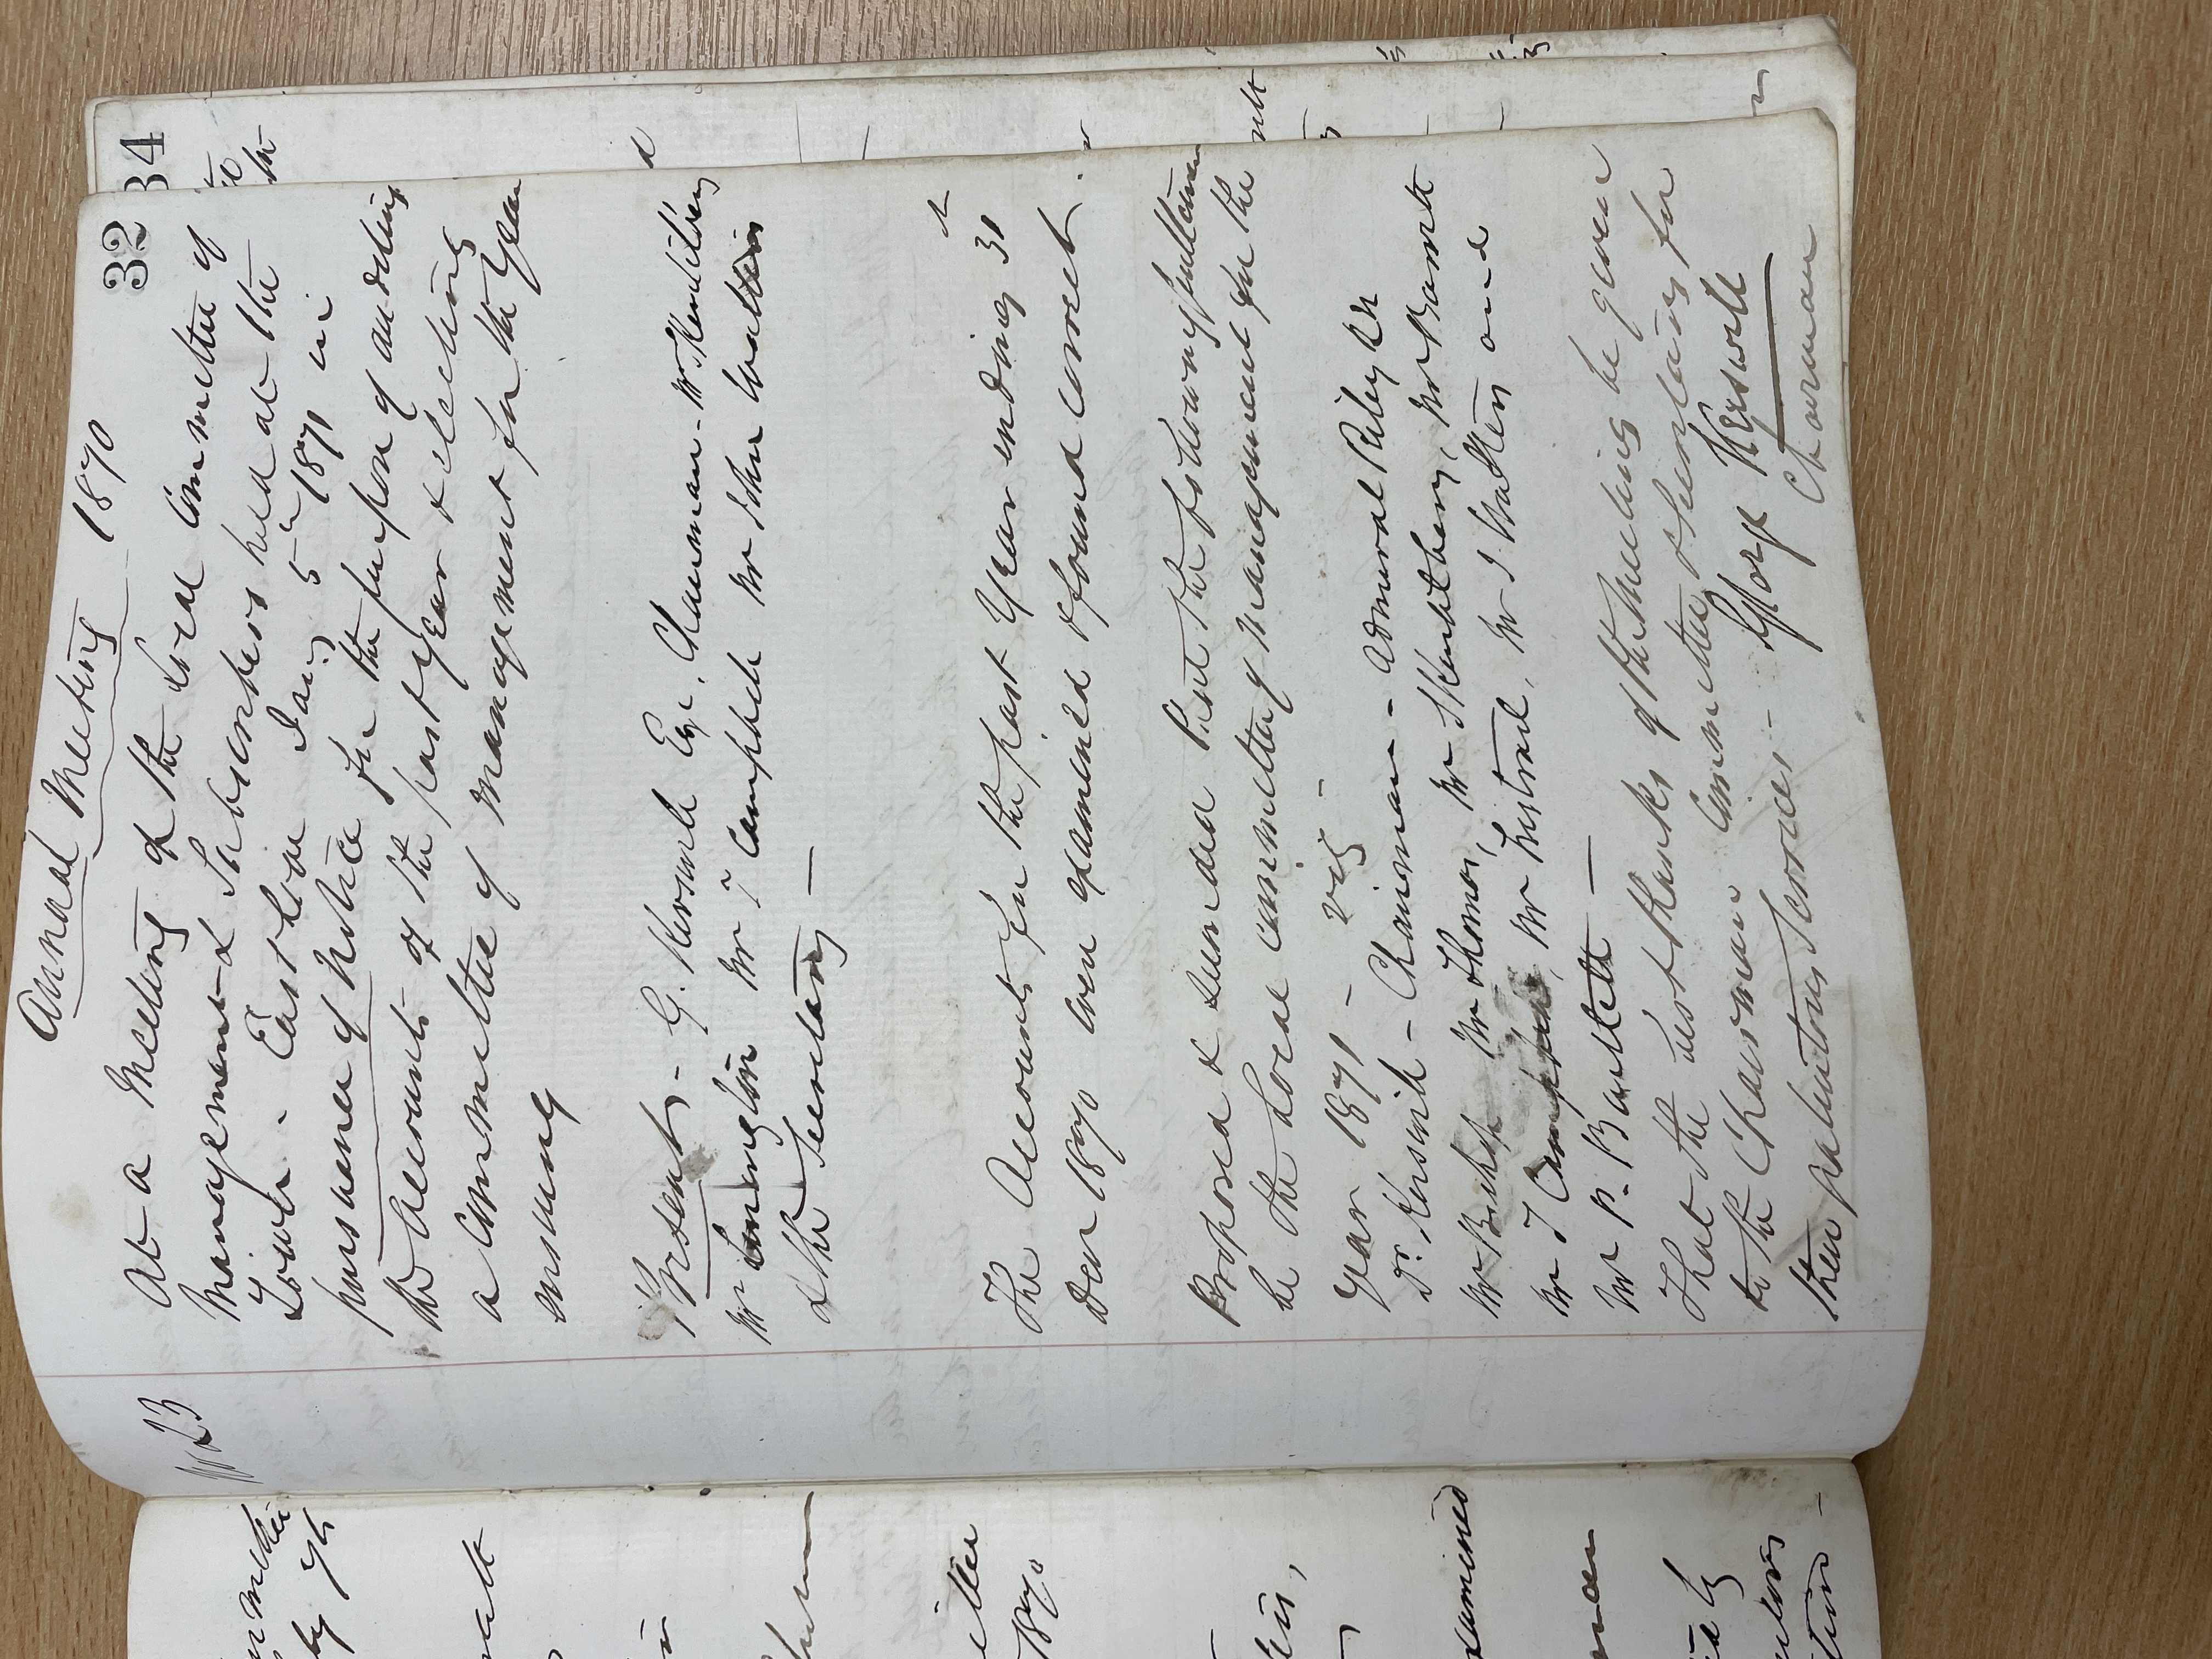 32
34
Annual Meeting 1870
No 23
At a Meeting of the Local Committee of
Management & Subscribers held at the
Town - East Looe Jany 5th 1871 in
pursuance of Notice for the purpose of auditing
the Accounts of the past year & electing
a Committee of Management for the Year
ensuing
Present - G. Kerswill Esqe, Chairman - Mr Skentelbery
Mr Mr T Campbell Mr John
& the Secretary —
The Accounts for the past Year ending 31st
Decr 1870 were examined & found correct.
Proposed & Seconded that the following Gentlemen
be the Local Committee of Management for the
Year 1871 - viz -
Dr. Kerswill - Chairman - Admiral Riley RN
Mr Bishop Mr Thomas, Mr Skentelbery, Mr Barratt
Mr T Campbell, Mr Lustrail, Mr J and
Mr P. Bartlett —
That the best thanks of the Meeting be given
to the Chairman Committee & Secretary for
their gratuitous Services -
George Kerswill
Chairman
1870
examined